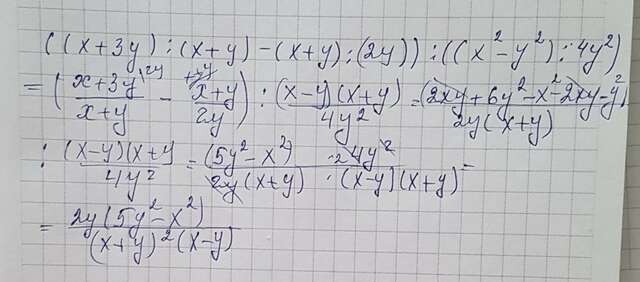 ((x+3y):(x+y)-(x+y):(2y)):((x²-y²):4y²)
=(\frac{x+3y}{x+y}^{\2y} - \frac{x+y}{2y}^{x+y}):\frac{(x-y)(x+y)}{4y²}=\frac{(2xy+6y²-x²-2xy-y²)}{2y(x+y)}
:\frac{(x-y)(x+y}{4y²}=\frac{(5y²-x²)·2 4y²}{2y(x+y)·(x-y)(x+y)}=
=\frac{2y(5y²-x²)}{(x+y)²(x-y)}